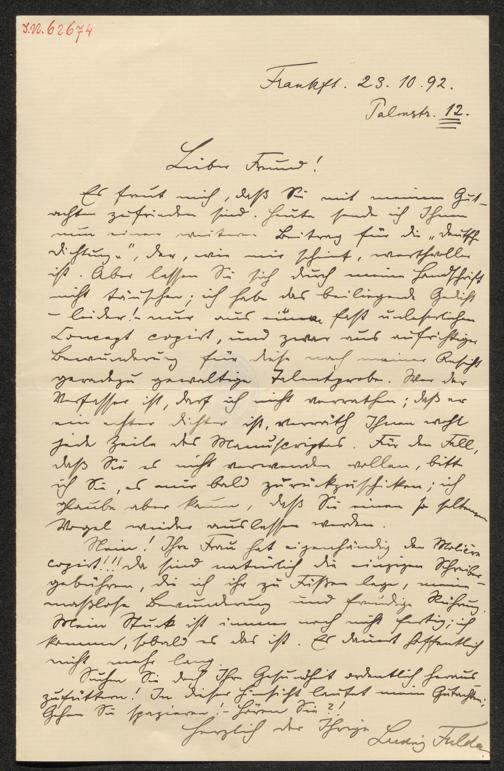 J.N. 62674
Frankft. 23. 10. 92.
Palmstr. 12.
Lieber Freund!
Es freut mich, daß Sie mit meinem Gut-
achten zufrieden sind. Heute sende ich Ihnen
nun einen weiteren Beitrag für die „Deutsche
Dichtung", der, wie mir scheint, werthvoller
ist. Aber lassen Sie sich durch meine Handschrift
nicht täuschen; ich habe das beiliegende Gedicht
– leider! – nur aus einem fast unleserlichen
Concept copirt, und zwar aus aufrichtiger
Bewunderung für diese nach meiner Ansicht
geradezu gewaltige Talentprobe. Wer der
Verfasser ist, darf ich nicht verrathen; daß er
ein echter Dichter ist, verräth Ihnen wohl
jede Zeile des Manuscriptes. Für den Fall,
daß Sie es nicht verwenden wollen, bitte
ich Sie, es mir bald zurückzuschicken; ich
glaube aber kaum, daß Sie einen so seltenen
Vogel wieder auslassen werden.
Nein! Ihre Frau hat eigenhändig den Molière
copirt!!! Da sind natürlich die einzigen Schreibe-
gebühren, die ich ihr zu Füßen lege, meine
maßlose Bewunderung und freudige Rührung.
Mein Stück ist immer noch nicht fertig; ich
komme, sobald es das ist. Es dauert hoffentlich
nicht mehr lang.
Suchen Sie doch Ihre Gesundheit ordentlich heraus
zufüttern! In dieser Hinsicht lautet mein Gutachten:
Gehen Sie spazieren! Hören Sie?!
Herzlich der Ihrige
Ludwig Fulda.